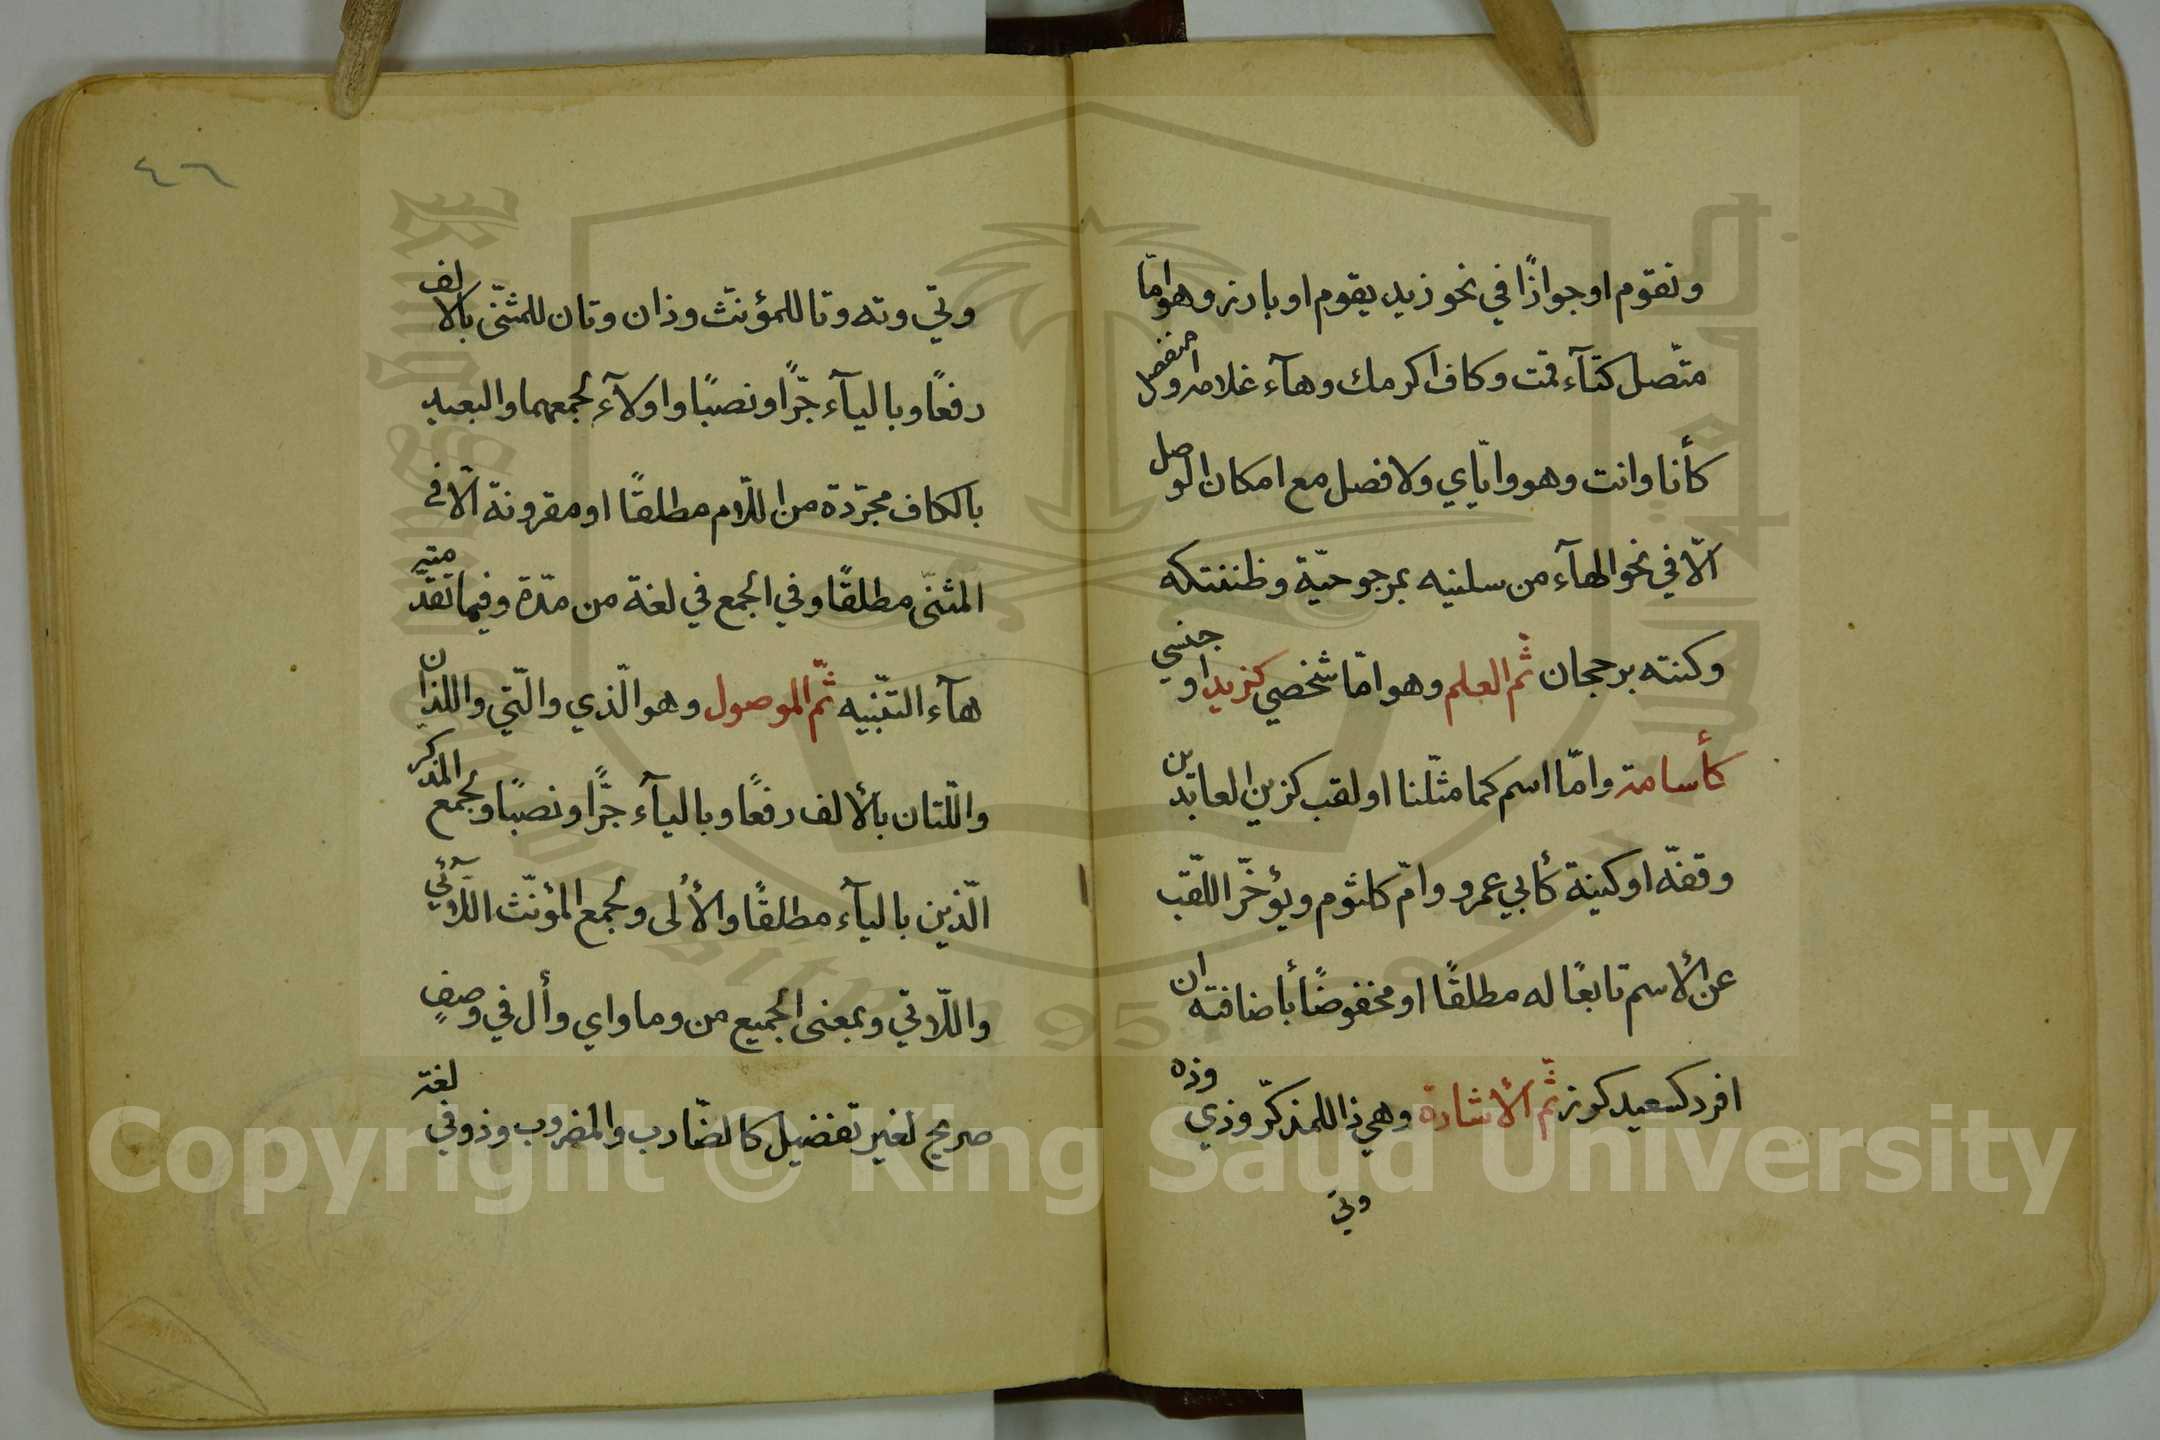 ونقوم او جوازًا في نحو زيد يقوم او بارز وهو امّا
متّصل كتآء قمت وكاف اكرمك وهآء غلامه او منفصل
كأنا وانت وهو وايّاي ولا فصل مع امكان الوصل
الّا في نحو الهآء من سلنيه بمرجوحيّة وظننتكه
وكنته برجحان ثمّ العلم وهو امّا شخصي كزيد او جنسي
كأسامة وامّا اسم كما مثّلنا او لقب كزين العابدين
وقفّه او كنية كأبي عمرو وامّ كلثوم ويؤخّر اللقب
عن الأسم تابعًا له مطلقًا او مخفوضًا بأضافته ان
افرد كسعيد كرز ثمّ الأشارة وهي ذا للمذكّر وذي وذه
وتي
٤٦
وتي وته وتا للمؤنّث وذان وتان للمثنّى بالالف
رفعًا وباليآء جرًّا ونصبًا واولآء لجمعهما والبعيد
بالكاف مجرّدة من اللّام مطلقًا او مقرونة الّا في
المثنّى مطلقًا وفي الجمع في لغة من مدّة وفيما تقدّمته
هآء التنبيه ثمّ الموصول وهو الّذي والّتي واللذان
واللّتان بالألف رفعًا وباليآء جرًّا ونصبًا ولجمع المذكّر
الّذين باليآء مطلقًا والألى ولجمع المؤنّث اللّآئي
واللّاتي وبمعنى الجميع من وما واي وأل في وصفٍ
صريح لغير تفضيل كالضّارب والمضروب وذو في لغة
Copyright © King Saud University
King Saud University
1957